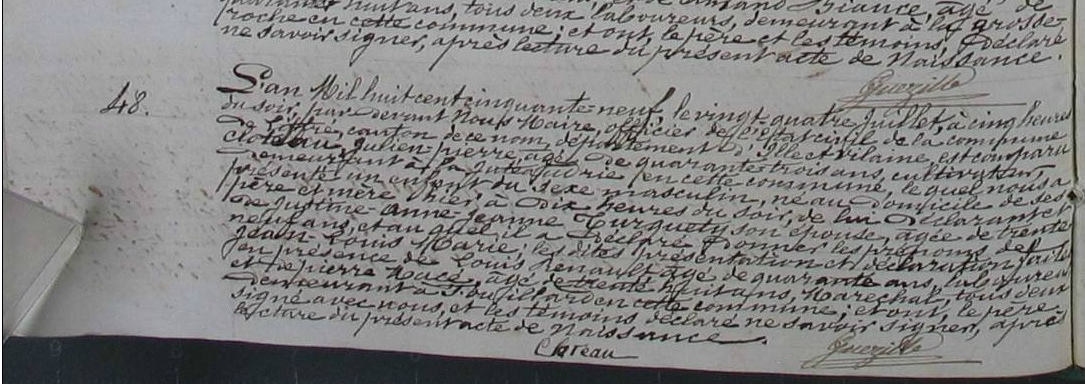 quarante huit ans, tous deux laboureurs, demeurant à la grosse-
roche en cette commune, et ont, le père et les témoins, Déclaré
ne savoir signer, après lecture du présent acte de Naissance.
48.
L'an Mil huit cent cinquante-neuf, le vingt-quatre Juillet, à cinq heures
du soir, par devant Nous Maire, officier de l'Etat civil de la commune
de canton de ce nom, département d'Ille et Vilaine, est comparu
Cloteau, Julien-pierre, âgé de quarante-trois ans, cultivateur,
demeurant à la en cette commune, lequel nous a
présenté un enfant du sexe masculin, né au Domicile de ses
père et mère hier, à Dix heures du soir, de lui Déclarant et
de Justine-Anne-Jeanne Turquety son épouse, âgée de trente
neuf ans, et au quel il a Déclaré Donner les prénoms de
Jean Louis Marie; les dites présentation et déclaration faites
en présence de Louis Renault, âgé de quarante ans, laboureur
et de pierre Macé, âgé de trente huit ans, Maréchal, tous deux
demeurant à en cette commune, et ont, le père
signé avec nous, et les témoins déclaré ne savoir signer, après
lecture du présent acte de Naissance.
Cloteau